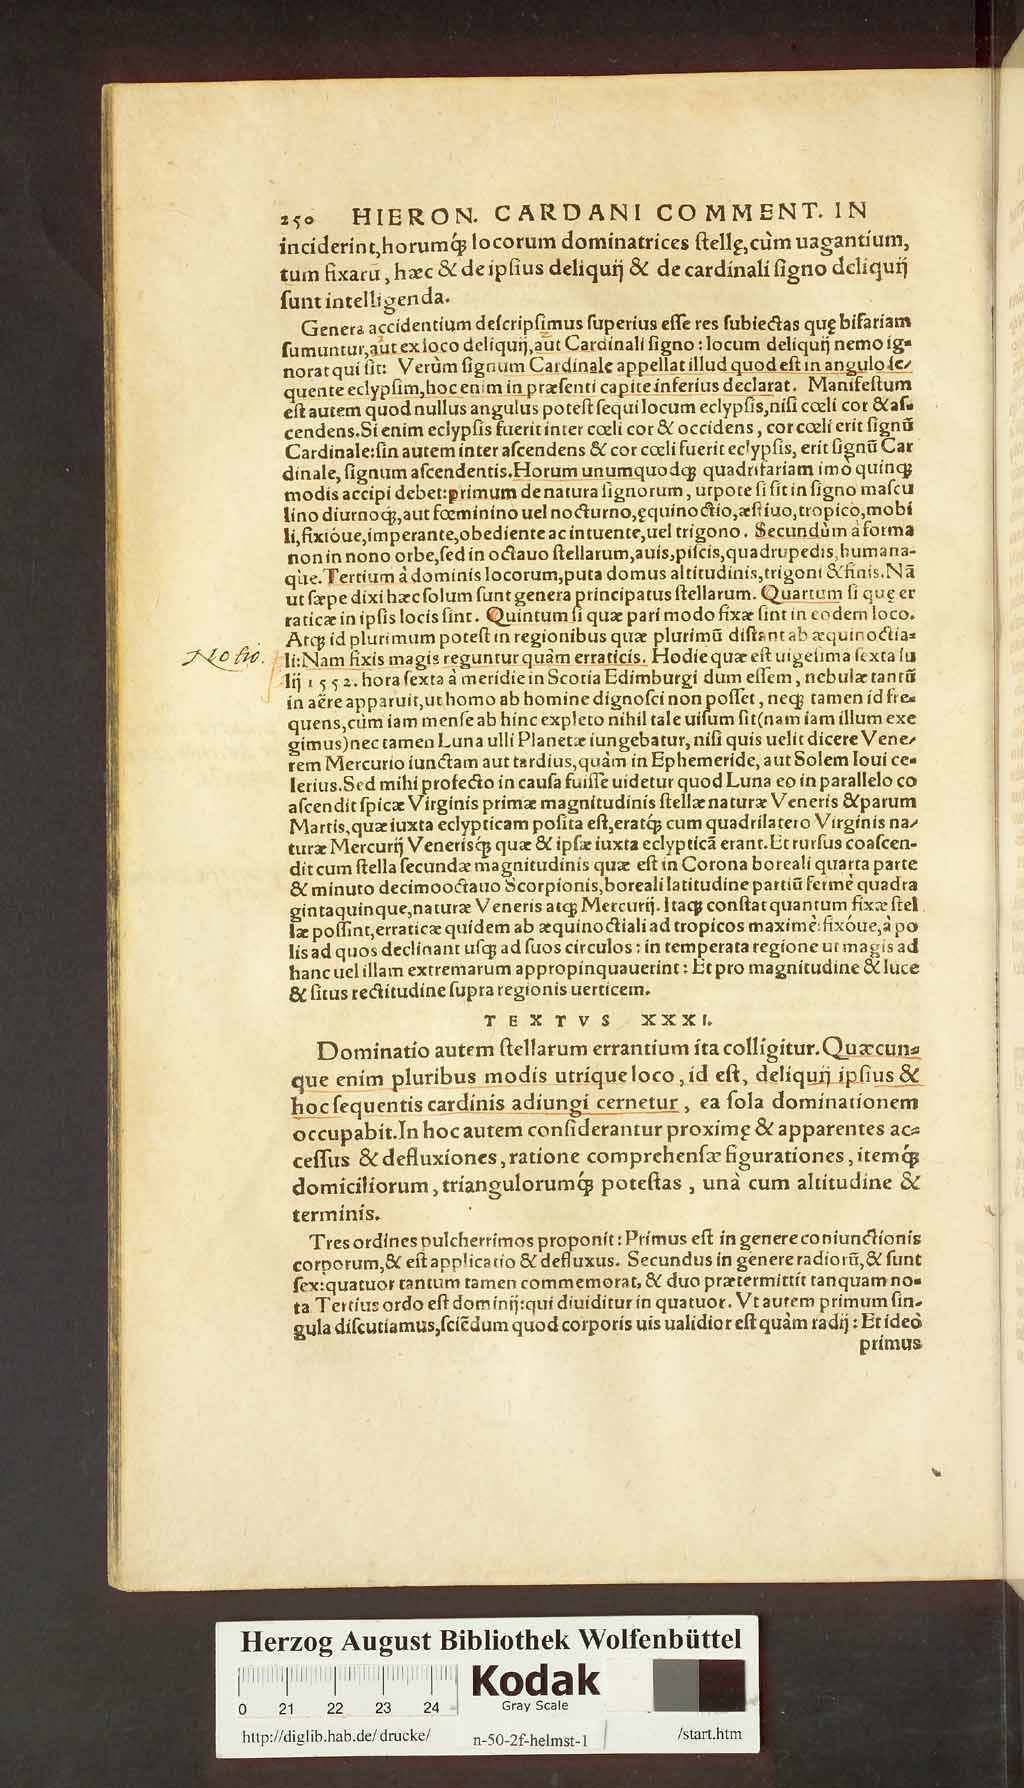 250 HIERON. CARDANI COMMENT. IN
inciderint, horumq́ȝ locorum dominatrices stellę, cùm uagantium,
tum fixarū, hæc & de ipsius deliquij & de cardinali signo deliquij
sunt intelligenda.
Genera accidentium descripsimus superius esse res subiectas quę bifariam
sumuntur, aut ex loco deliquij, aut Cardinali signo: locum deliquij nemo ig-
norat qui sit: Verùm signum Cardinale appellat illud quod est in angulo se/
quente eclypsim, hoc enim in præsenti capite inferius declarat. Manifestum
est autem quod nullus angulus potest sequi locum eclypsis, nisi cœli cor & as-
cendens. Si enim eclypsis fuerit inter cœli cor & occidens, cor cœli erit signū
Cardinale: sin autem inter ascendens & cor cœli fuerit eclypsis, erit signū Car
dinale, signum ascendentis. Horum unumquodqȝ quadrifariam imò quinqȝ
modis accipi debet: primum de natura signorum, utpote si sit in signo mascu
lino diurnoqȝ, aut fœminino uel nocturno, ęquinoctio, æstiuo, tropico, mobi
li, fixióue, imperante, obediente ac intuente, uel trigono. Secundùm à forma
non in nono orbe, sed in octauo stellarum, auis, piscis, quadrupedis, humana-
qùe. Tertium à dominis locorum, puta domus altitudinis, trigoni & finis. Nā
ut sæpe dixi hæc solum sunt genera principatus stellarum. Quartum si quę er
raticæ in ipsis locis sint. Quintum si quæ pari modo fixæ sint in eodem loco.
Atqȝ id plurimum potest in regionibus quæ plurimū distant ab æquinoctia-
Notio. li: Nam fixis magis reguntur quàm erraticis. Hodie quæ est uigesima sexta Iu
lij 1552. hora sexta à meridie in Scotia Edimburgi dum essem, nebulæ tantū
in aëre apparuit, ut homo ab homine dignosci non posset, neqȝ tamen id fre-
quens, cùm iam mense ab hinc expleto nihil tale uisum sit (nam iam illum exe
gimus) nec tamen Luna ulli Planetæ iungebatur, nisi quis uelit dicere Vene/
rem Mercurio iunctam aut tardius, quàm in Ephemeride, aut Solem Ioui ce-
lerius. Sed mihi profecto in causa fuisse uidetur quod Luna eo in parallelo co
ascendit spicæ Virginis primæ magnitudinis stellæ naturæ Veneris & parum
Martis, quæ iuxta eclypticam posita est, eratq́ȝ cum quadrilatero Virginis na/
turæ Mercurij Venerisq́ȝ quæ & ipsæ iuxta eclypticā erant. Et rursus coascen-
dit cum stella secundæ magnitudinis quæ est in Corona boreali quarta parte
& minuto decimooctauo Scorpionis, boreali latitudine partiū fermè quadra
gintaquinque, naturæ Veneris atqȝ Mercurij. Itaqȝ constat quantum fixæ stel
læ possint, erraticæ quidem ab æquinoctiali ad tropicos maximè: fixóue, à po
lis ad quos declinant usqȝ ad suos circulos: in temperata regione ut magis ad
hanc uel illam extremarum appropinquauerint: Et pro magnitudine & luce
& situs rectitudine supra regionis uerticem.
TEXTVS XXXI.
Dominatio autem stellarum errantium ita colligitur. Quæcun-
que enim pluribus modis utrique loco, id est, deliquij ipsius &
hoc sequentis cardinis adiungi cernetur, ea sola dominationem
occupabit. In hoc autem considerantur proximę & apparentes ac-
cessus & defluxiones, ratione comprehensæ figurationes, itemq́ȝ
domiciliorum, triangulorumq́ȝ potestas, unà cum altitudine &
terminis.
Tres ordines pulcherrimos proponit: Primus est in genere coniunctionis
corporum, & est applicatio & defluxus. Secundus in genere radiorū, & sunt
sex: quatuor tantum tamen commemorat, & duo prætermittit tanquam no-
ta Tertius ordo est dominij: qui diuiditur in quatuor. Vt autem primum sin-
gula discutiamus, sciēdum quod corporis uis ualidior est quàm radij: Et ideò
primus
Herzog August Bibliothek Wolfenbüttel
Kodak
Gray Scale
0 21 22 23 24
http://diglib.hab.de/drucke/ n-50-2f-helmst-1 /start.htm